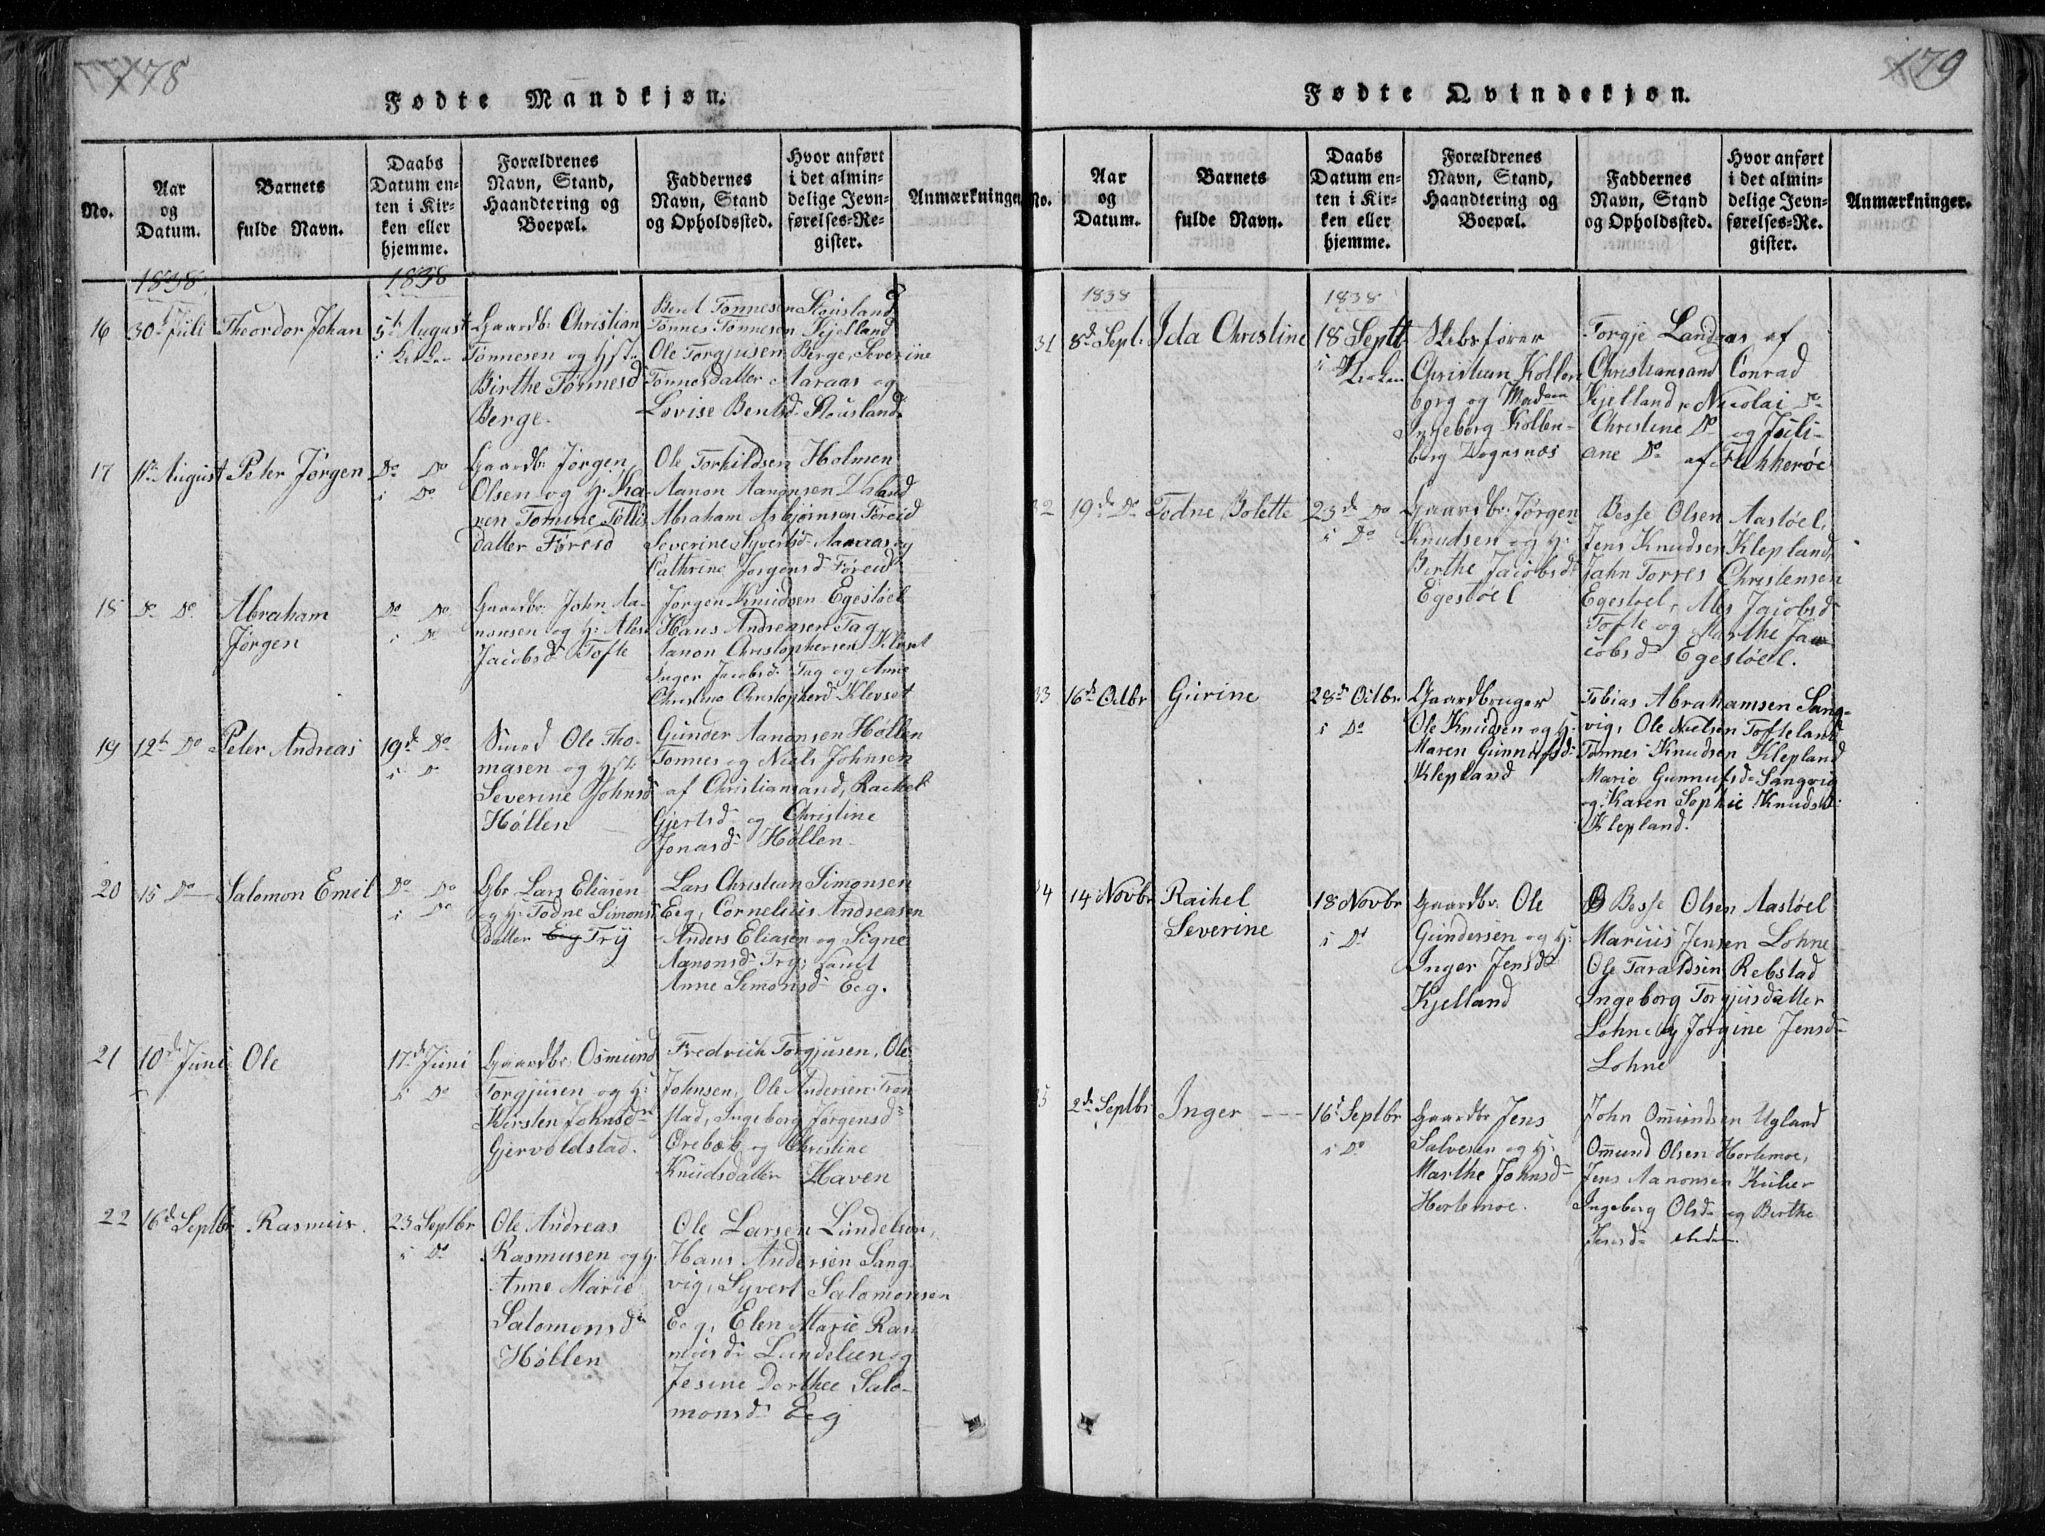 178
Fødte Mandkjøn.
No.
Aar og Datum.
Barnets fulde Navn.
Daabs Datum enten i Kirken eller hjemme.
Forældrenes Navn, Stand, Haandtering og Boepæl.
Faddernes Navn, Stand og Opholdssted.
Hvor anført i det almindelige Jevnførelses-Register.
Anmærkninger
1838
1838
16
30te Juli
Theordor Johan
5te August
i Kirken
Gaardbr. Christian
Tønnesen og Hst.
Birthe Tønnesd
Berge.
Bent Tønnesen Stousland
Tønnes Tønnesen Kjelland
Ole Torgjusen Berge, Severine
Tønnesdatter Aaraas og
Lovise Bentsd Stousland
17
1te August
Peter Jørgen
Do Do
i Do
Gaardb. Jørgen
Olsen og H. Ka-
ren Tomine Tollis
datter Føreid
Ole Torkildsen Holmen
Aanon Aanonsen
Abraham Asbjørnsen Føreid
Severine Syvertsd Aaraas og
Cathrine Jørgensd Føreid
18
Do Do
Abraham
Jørgen
Do Do
i Do
Gaardbr. John Aa-
nonsen og H. Ales
Jacobsd Tofte
Jørgen Knudsen Egestøel
Hans Andreasen Tag
Aanon Christophersen Klevset
Inger Jacobsd Tag og Anne
Christine Christopherd Klevset
19
12te Do
Peter Andreas
19de Do
i Do
Smed Ole Tho-
masen og Hst.
Severine Johnsd
Høllen
Gunder Aanonsen Høllen
Tønnes og Niels Johnsen
af Christiansand, Rachel
Gjertsd og Christine
Jonasd Høllen
20
15 Do
Salomon Emil
Do Do
i Do
Gbr. Lars Eliasen
og H. Todne Simons
datter Eeg Try
Lars Christian Simonsen
Eeg, Cornelius Andreasen
Anders Eliasen og Signe
Aanonsd Try, samt
Anne Simonsd Eeg.
21
10de Juni
Ole
17de Juni
i Do
Gaardbr. Osmund
Torgjusen og H.
Kirsten Johnsd
Gjervoldstad.
Fredrich Torgjusen, Ole
Johnsen, Ole Andersen Tron
stad, Ingeborg Jørgensd
Ørebæk og Christine
Knudsdatter Haven
22
16de Septbr
Rasmus
23 Septbr
i Do
Ole Andreas
Rasmusen og H.
Anne Marie
Salomonsd
Høllen
Ole Larsen Lundelsen,
Hans Andersen Sang
vig, Syvert Salomonsen
Eeg, Elen Marie Ras
musd Lundelien og
Jesine Dorthee Salo-
monsd Eeg
179
Fødte Qvindekjøn.
No.
Aar og Datum.
Barnets fulde Navn.
Daabs Datum enten i Kirken eller hjemme.
Forældrenes Navn, Stand, Haandtering og Boepæl.
Faddernes Navn, Stand og Opholdssted.
Hvor anført i det almindelige Jevnførelses-Register.
Anmærkninger.
1838
1838
31
8de Sept.
Ida Christine
18 Sept
i Kirken
Skibsfører
Christian Kollen
borg og Madam
Ingeborg Kollen-
borg
Torgje Landaas af
Christiansand Conrad
Kjelland, Nicolai Do
Christine Do og Juli-
ane Do af Flekkerøe
32
19de Do
Todne Bolette
23de Do
i Do
Gaardbr. Jørgen
Knudsen og H.
Berthe Jacobsd
Egestøel
Besse Olsen Aastøel,
Jens Knudsen Klepland,
Jahn Torres Christensen
Egestøel, Ales Jacobsd
Tofte og Marthe Ja-
cobsd Egestøel.
33
16de Octbr
Gurine
28de Octbr
i Do
Gaardbruger
Ole Knudsen og H.
Maren Gunnufsd
Klepland
Tobias Abrahamsen Sang-
vig, Ole Nielsen Tofteland
Tønnes Knudsen Klepland
Marie Gunnufsd Sangvig
og Karen Sophie Knudsd
Klepland.
34
14 Novbr
Rachel
Severine
18 Novbr
i Do
Gaardbr. Ole
Gundersen og H.
Inger Jensd
Kjelland
Besse Olsen Aastøel
Marius Jensen Lohne
Ole Taraldsen Rebstad
Ingeborg Torgjusdatter
Lohne og Jørgine Jensd
Lohne
35
2de Septbr
Inger
16de Septbr
i Do
Gaardbr. Jens
Salvesen og H.
Marthe Johnsd
Hortemoe.
John Omundsen Ugland
Omund Olsen Hortemoe,
Jens Aanonsen Kulier
Ingeborg Olsd og Berthe
Jensd ibidem.